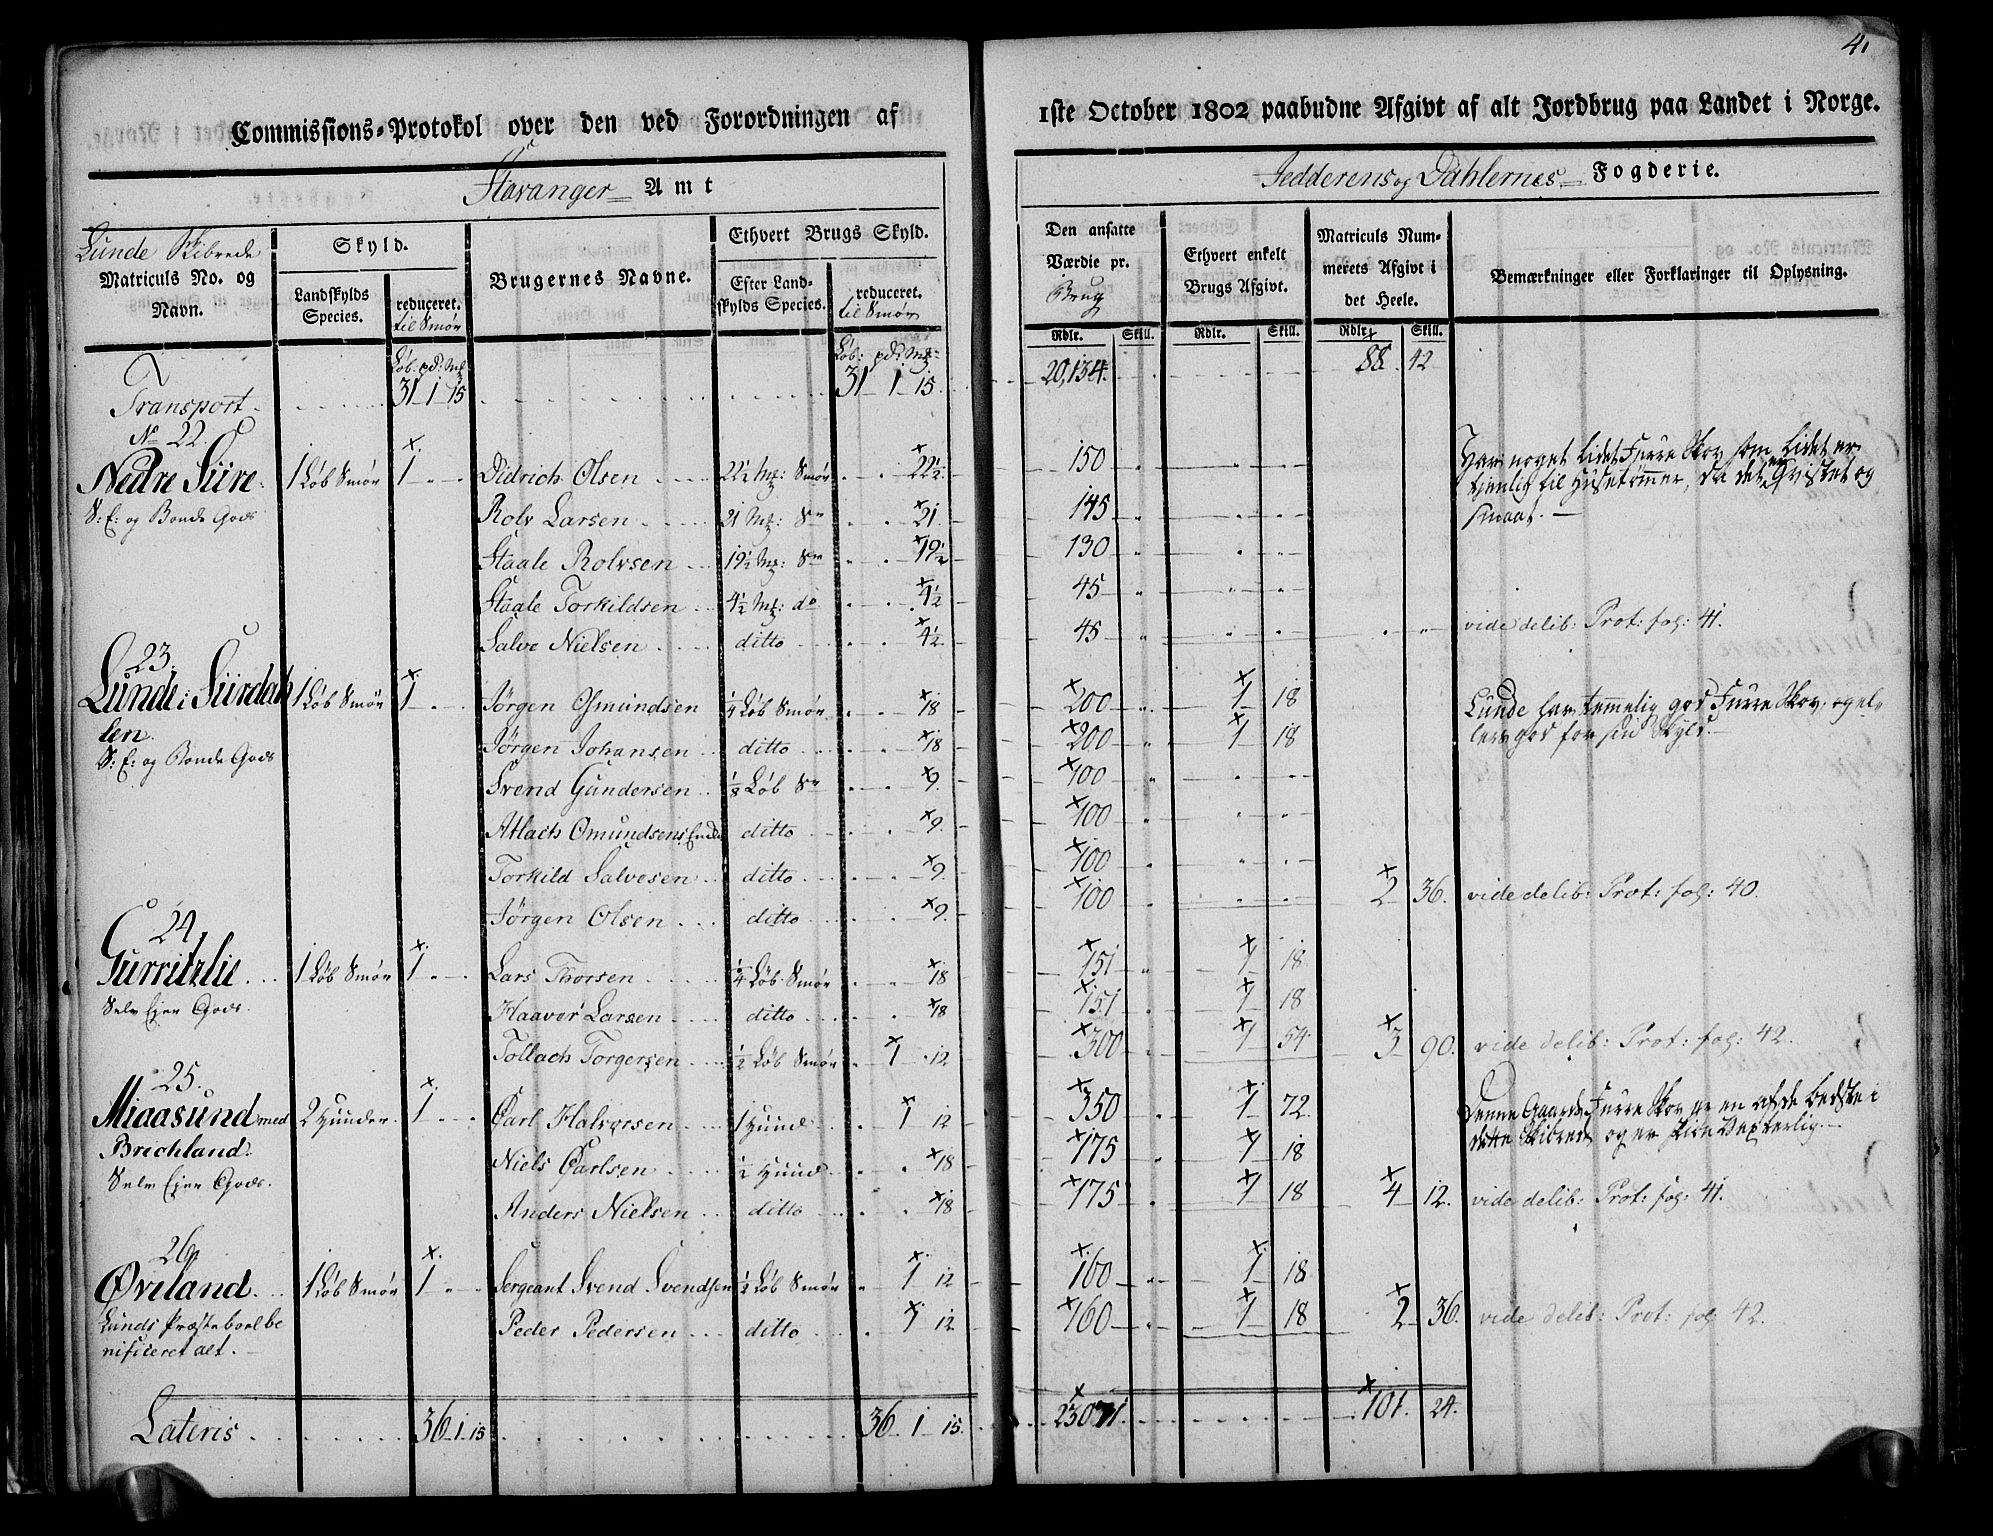 Commissions-Protokol over den ved Forordningen af
Stavanger Amt
Lunde Skibrede
Matriculs No. og Navn.
Skyld.
Landskylds Species.
reduceret. til Smør
Brugernes Navne.
Ethvert Brugs Skyld.
Efter Landskylds Species.
reduceret. til Smør
Løb: pd: Mk
Løb: pd: Mk
Transport 31 1 15 31 1 15
No 22.
Nedre Siire 1 Løb Smør 1 Didrich Olsen 22½ Mk: Smør 22½
S: E: og Bonde Gods Rolv Larsen 21 Mk: Sr 21
Staale Rolvsen 19½ Mk: Sr 19½
Staale Torkildsen 4½ Mk: do 4½
Salve Nielsen ditto 4½
23.
Lunde i Siirdah 1 Løb Smør 1 Jørgen Osmundsen ¼ Løb Smør 18
len. Jørgen Johansen ditto 18
S: E: og Bonde Gods Svend Gundersen ⅛ Løb Sr 9
Atlach Omundsens Enke ditto 9
Torkild Salvesen ditto 9
Jørgen Olsen ditto 9
24.
Gurritzlie 1 Løb Smør 1 Lars Thorsen ¼ Løb Smør 18
Selv Ejer Gods. Haavor Larsen ditto 18
Tollach Torgersen ½ Løb Smør 1 12
25.
Miaasund med 2 Huuder 1 Carl Halvorsen 1 Huud 1 12
Brechland. Niels Carlsen ½ Huud 18
Selv Ejer Gods. Anders Nielsen ditto 18
26.
Øveland 1 Løb Smør 1 Sergeant Svend Svendsen ½ Løb Smør 1 12
Lunds Præsteboel be Peder Pedersen ditto 1 12
nificeret alt.
Lateris 36 1 15 36 1 15
41
1ste October 1802 paabudne Afgivt af alt Jordbrug paa Landet i Norge.
Jedderens og Dahlernes Fogderie.
Den ansatte Værdie pr. Brug
Ethvert enkelt Brugs Afgivt.
Matriculs Nummerets Afgivt i det Heele.
Bemærkninger eller Forklaringer til Oplysning.
Rdlr. Skill. Rdlr. Skill. Rdlr. Skill.
20,134. 88. 42
150 Har noget lidet Furre Skov som lidet er
tienlig til Husetømmer, da det er Qvistet og
145 smaat.
130
45
45 vide delib: Prot: fol: 41.
200 1 18 Lunde har temmelig god Furre Skov, og el-
200 1 18 lers god for sin Skyld.
100
100
100
100 2 36. vide delib: Prot: fol: 40.
151 1 18
151 1 18
300 1 54 3 90. vide delib: Prot: fol: 42.
350 1 72. Denne Gaards Furre Skov er en af de bedste i
175 1 18 dette Skibrede og er Vexterlig.
175 1 18 4 12. vide delib: Prot: fol: 41.
160 1 18
160 1 18 2 36. vide delib: Prot: fol: 42.
23071. 101. 24.